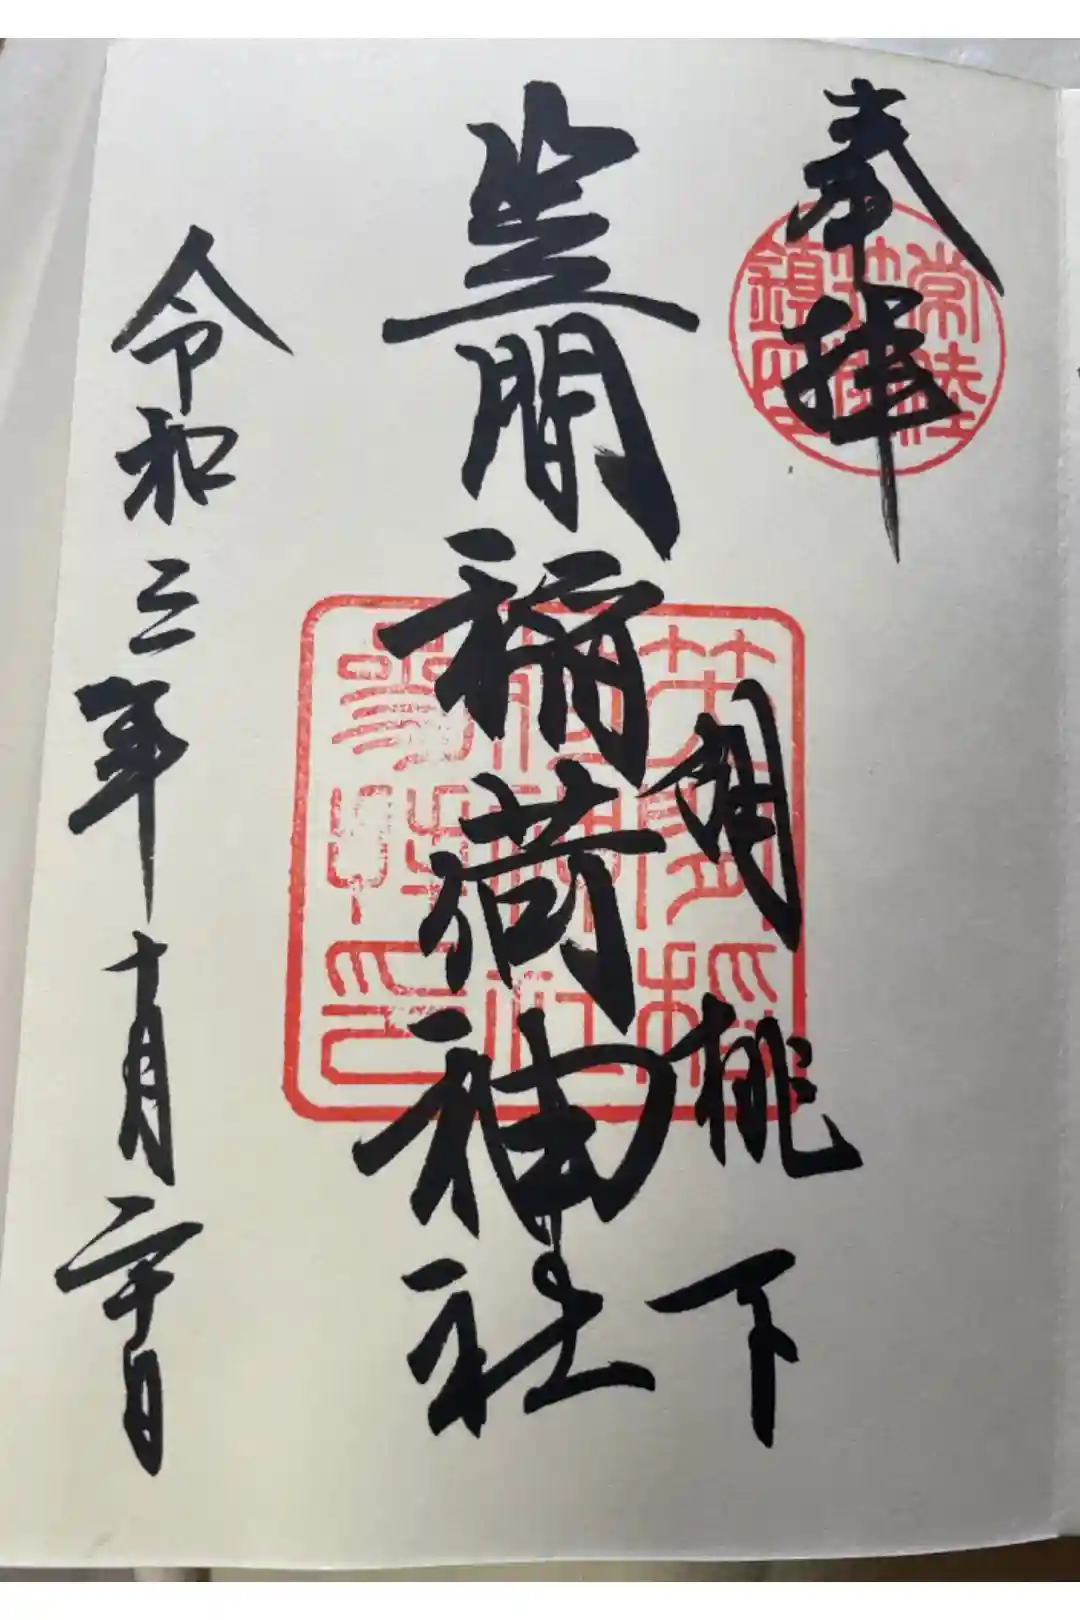 奉拝
常陸
鎮
胡桃下
笠間稲荷神社
笠間稲
荷神社
參拜印
令和三年十月二十日